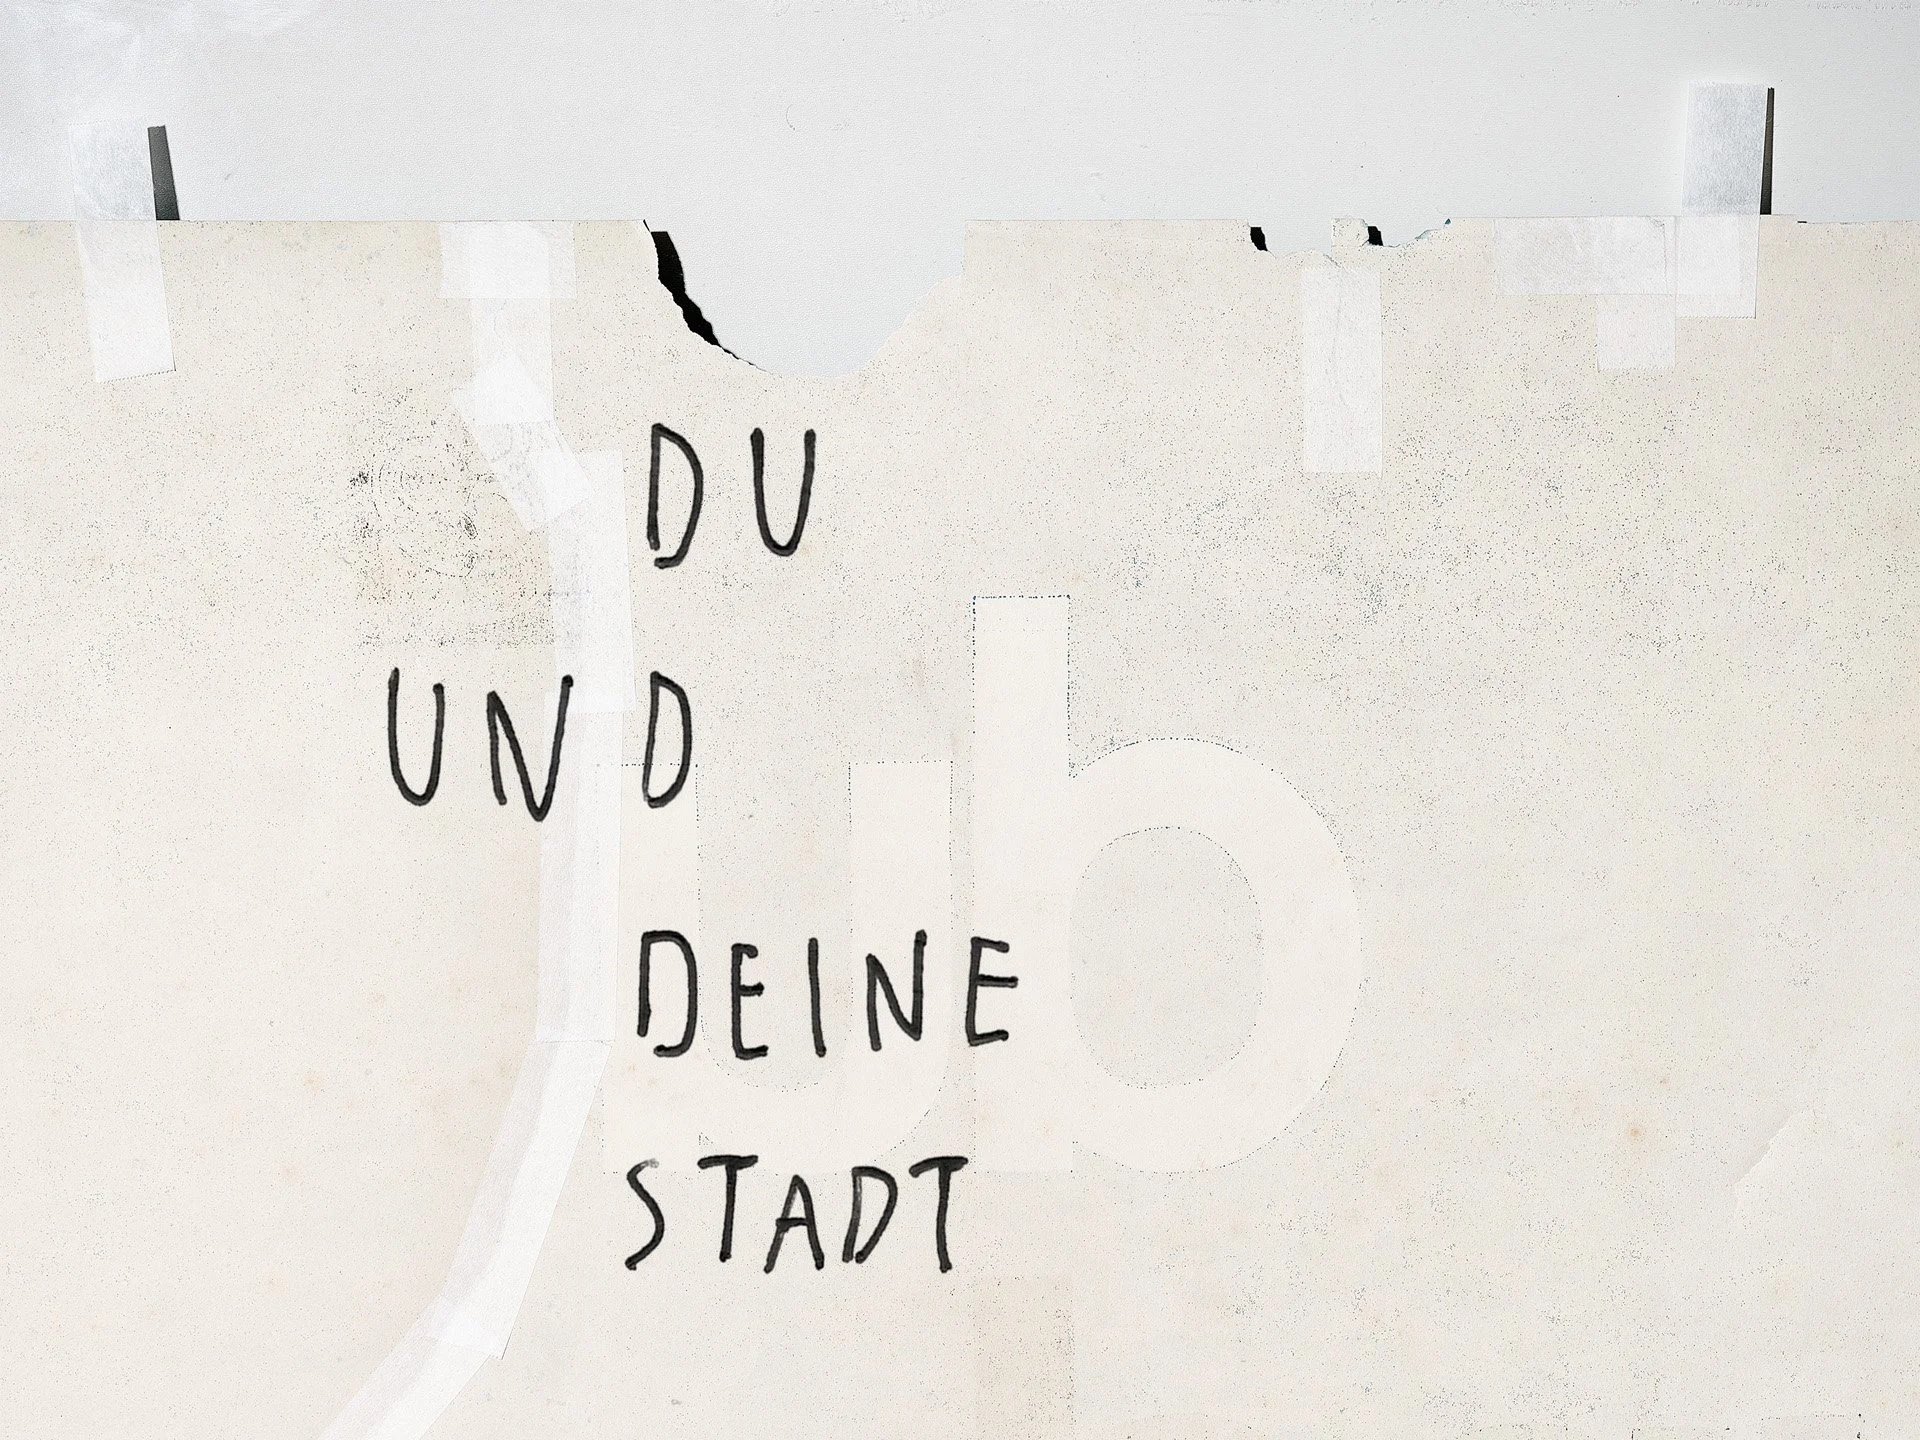 DU
UND
DEINE
STADT
ub